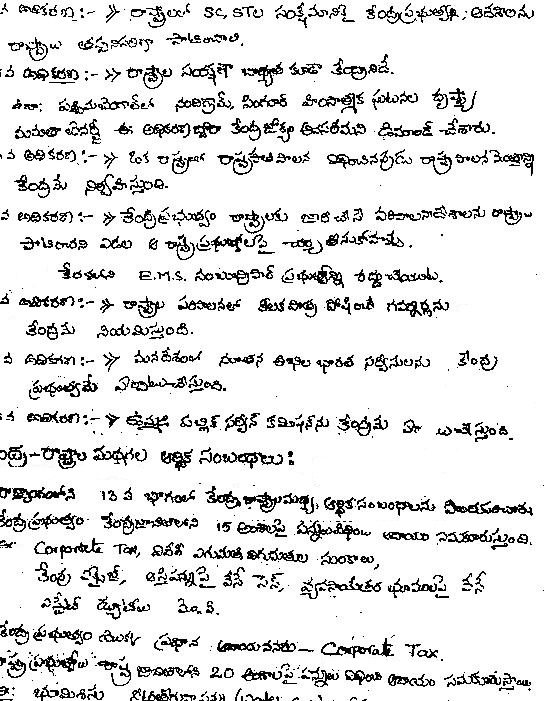 వ అధికరణ :- » రాష్ట్రాలలో SC, STల సంక్షేమానికై కేంద్రప్రభుత్వ ఆదేశాలను
రాష్ట్రాలు తప్పనిసరిగా పాటించాలి.
వ అధికరణ :- » రాష్ట్రాల సంరక్షణ బాధ్యత కూడా కేంద్రానిదే.
ఉదా: పశ్చిమబెంగాల్‌లో నందిగ్రామ్, సింగూర్ హింసాత్మక ఘటనల దృష్ట్యా
మమతా బెనర్జీ ఈ అధికరణద్వారా కేంద్రజోక్యం అవసరమని డిమాండ్ చేశారు.
వ అధికరణ :- » ఒక రాష్ట్రంలో రాష్ట్రపతిపాలన విధించినప్పుడు రాష్ట్ర పాలన మొత్తాన్ని
కేంద్రమే నిర్వహిస్తుంది.
వ అధికరణ :- » కేంద్రప్రభుత్వం రాష్ట్రాలకు జారీచేసే పరిపాలనాదేశాలను రాష్ట్రాలు
పాటించని ఎడల ఆ రాష్ట్రప్రభుత్వాలపై చర్య తీసుకోవచ్చు.
కేరళలోని E.M.S. నంబూద్రిపాద్ ప్రభుత్వాన్ని రద్దుచేయుట.
వ అధికరణ :- » రాష్ట్రాల పరిపాలనలో కీలకపాత్ర పోషించే గవర్నర్లను
కేంద్రమే నియమిస్తుంది.
వ అధికరణ :- » మనదేశంలో నూతన అఖిల భారత సర్వీసులను కేంద్ర
ప్రభుత్వమే ఏర్పాటుచేస్తుంది.
వ అధికరణ :- » ఉమ్మడి పబ్లిక్ సర్వీస్ కమిషన్‌ను కేంద్రమే ఏర్పాటుచేస్తుంది.
కేంద్ర-రాష్ట్రాల మధ్యగల ఆర్థిక సంబంధాలు :
రాజ్యాంగంలోని 12 వ భాగంలో కేంద్ర రాష్ట్రాలమధ్య, ఆర్థిక సంబంధాలను వివరించారు.
కేంద్రప్రభుత్వం కేంద్రజాబితాలోని 15 అంశాలపై పన్నులవిధించి ఆదాయం సమకూరుస్తుంది.
Corporate Tax, విదేశీ ఎగుమతి దిగుమతుల సుంకాలు,
కేంద్ర ఎక్సైజ్, ఆస్తిపన్నుపై వేసే సెస్, వ్యవసాయేతర భూములపై వేసే
ఎస్టేట్ డ్యూటీలు మొ.వి.
కేంద్ర ప్రభుత్వం యొక్క ప్రధాన ఆదాయవనరు - Corporate Tax.
రాష్ట్ర ప్రభుత్వాలు రాష్ట్ర జాబితాలోని 20 అంశాలపై పన్నులు విధించి ఆదాయం సమకూరుస్తాయి.
భూమిశిస్తు